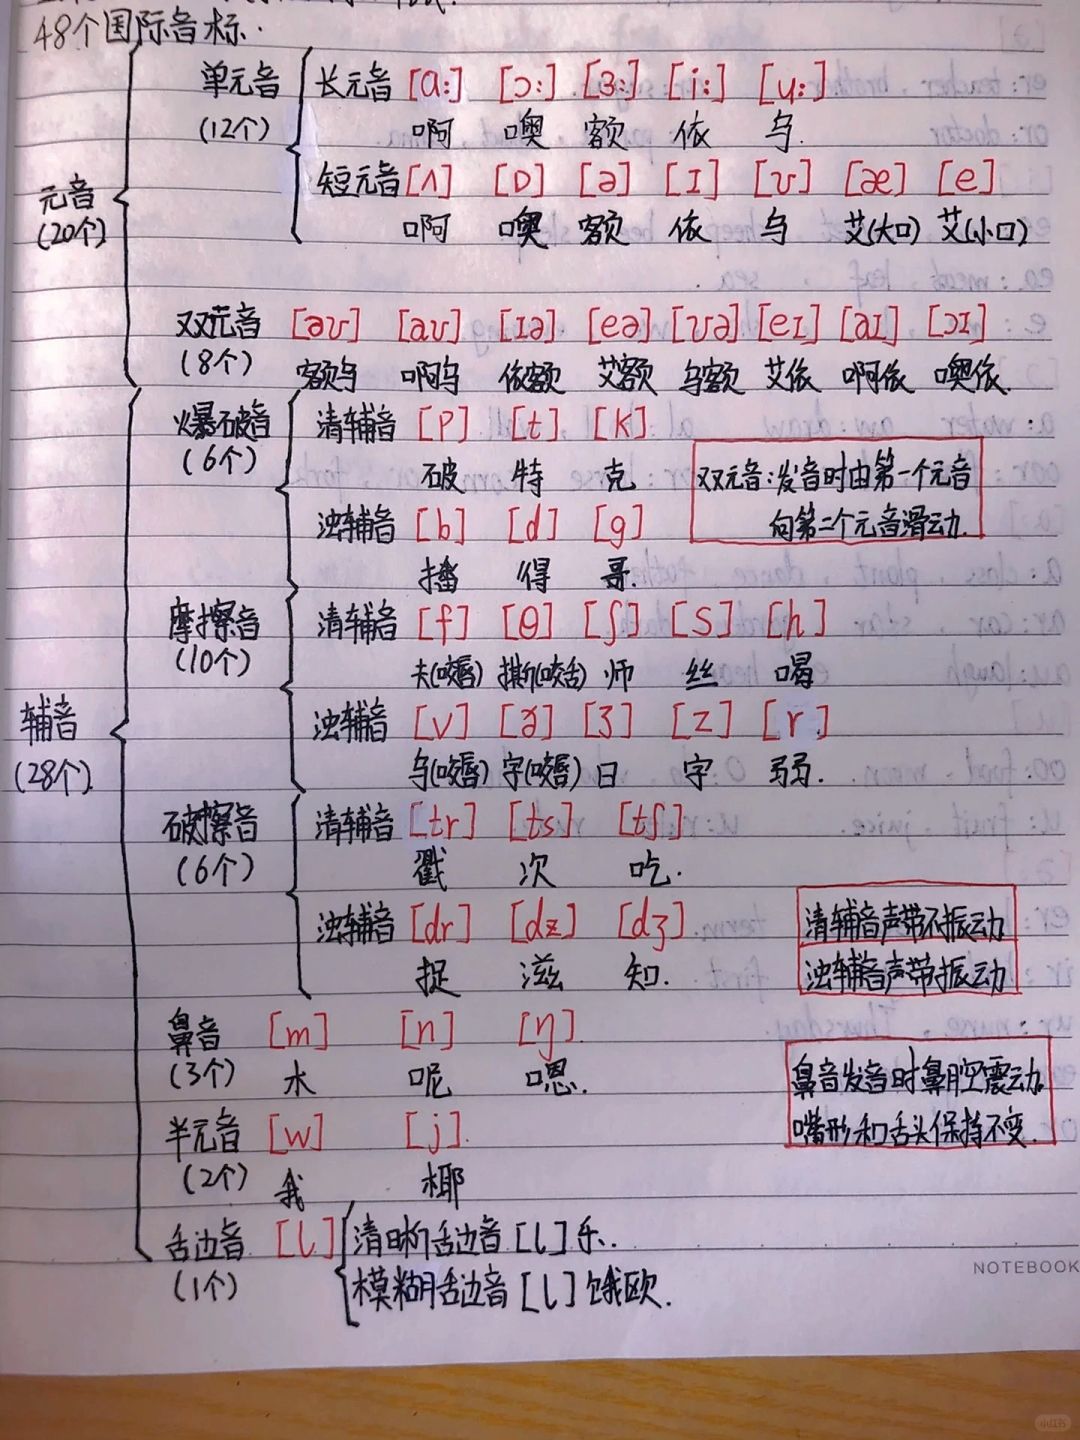 48个国际音标.
单元音 长元音 [ɑ:] [ɔ:] [ɜ:] [i:] [u:]
(12个) 啊 噢 额 依 乌.
元音 短元音 [ʌ] [ɒ] [ə] [ɪ] [ʊ] [æ] [e]
(20个) 啊 噢 额 依 乌 艾(大口) 艾(小口)
双元音 [əʊ] [aʊ] [ɪə] [eə] [ʊə] [eɪ] [aɪ] [ɔɪ]
(8个) 额乌 啊乌 依额 艾额 乌额 艾依 啊依 噢依.
爆破音 清辅音 [p] [t] [k]
(6个) 破 特 克
双元音:发音时由第一个元音
向第二个元音滑动.
浊辅音 [b] [d] [g]
播 得 哥.
摩擦音 清辅音 [f] [θ] [ʃ] [s] [h]
(10个) 夫(咬唇) 撕(咬舌) 师 丝 喝
辅音 浊辅音 [v] [ð] [ʒ] [z] [r]
(28个) 乌(咬唇) 字(咬唇) 日 字 弱.
破擦音 清辅音 [tr] [ts] [tʃ]
(6个) 戳 次 吃.
浊辅音 [dr] [dz] [dʒ]
捉 滋 知.
清辅音声带不振动
浊辅音声带振动
鼻音 [m] [n] [ŋ]
(3个) 木 呢 嗯.
鼻音发音时鼻腔震动.
嘴形和舌头保持不变.
半元音 [w] [j].
(2个) 我 椰
舌边音 [l] 清晰舌边音 [l] 乐.
(1个) 模糊舌边音 [l] 饿欧.
NOTEBOOK
小红书